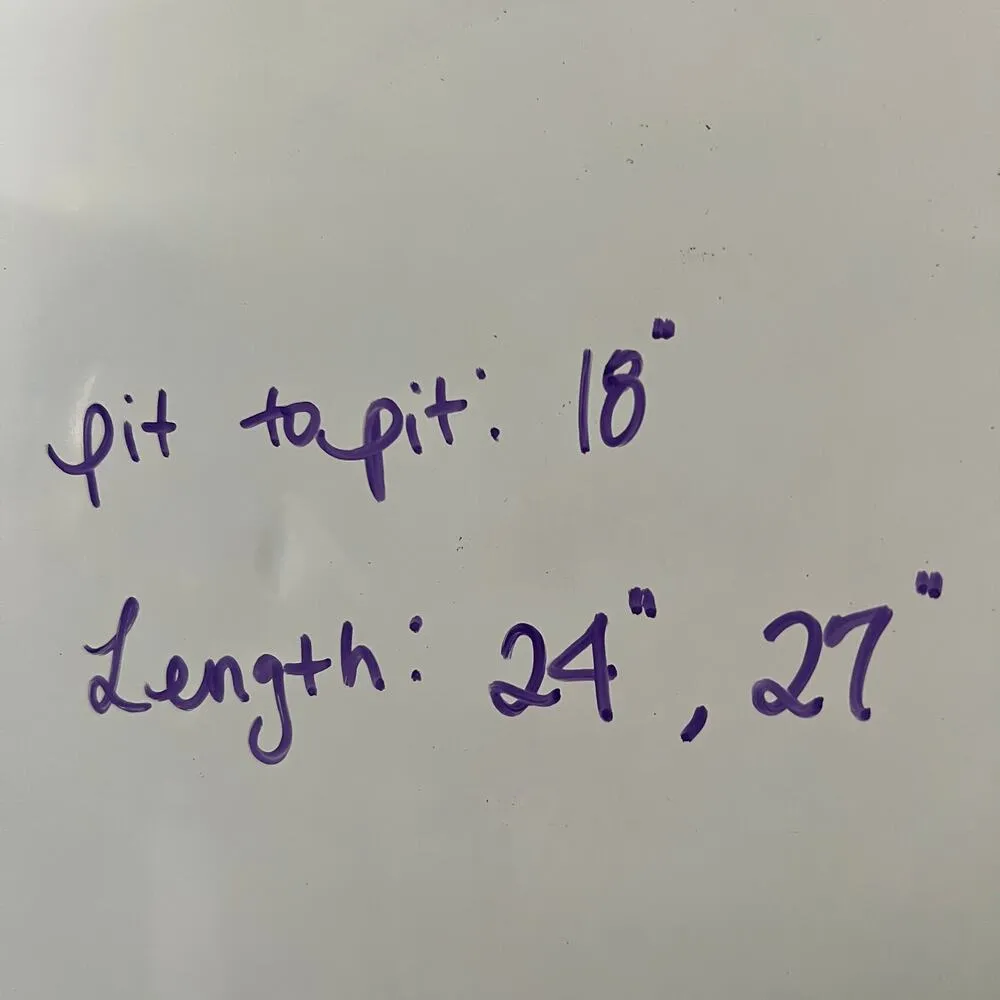 pit to pit: 18"
Length: 24", 27"